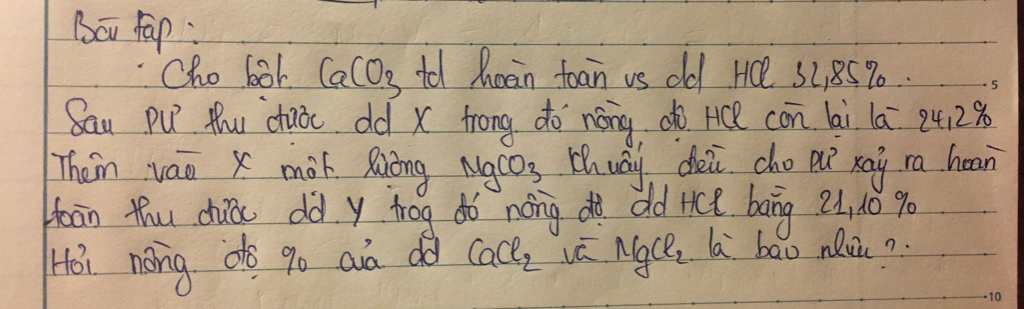 Bài tập:
Cho bột CaCO3 td hoàn toàn vs dd HCl 32,85%.
5
Sau PƯ thu được dd X trong đó nồng độ HCl còn lại là 24,2%
Thêm vào X một lượng MgCO3 khuấy đều cho pư xảy ra hoàn
toàn thu được dd Y trog đó nồng độ dd HCl bằng 21,10%
Hỏi nồng độ % của dd CaCl2 và MgCl2 là bao nhiêu?
10